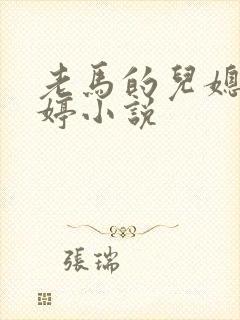 老馬的兒媳
婷小說
張瑞